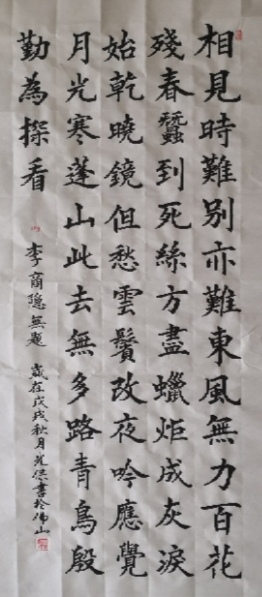 相見時難别亦難東風無力百花
殘春蠶到死絲方盡蠟炬成灰淚
始乾曉鏡但愁雲鬢改夜吟應覺
月光寒蓬山此去無多路青鳥殷
勤為探看
李商隐無題 歲在戊戌秋月書於佛山